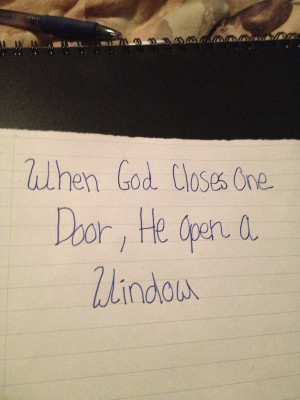 When God Closes One
Door, He Open a
Window